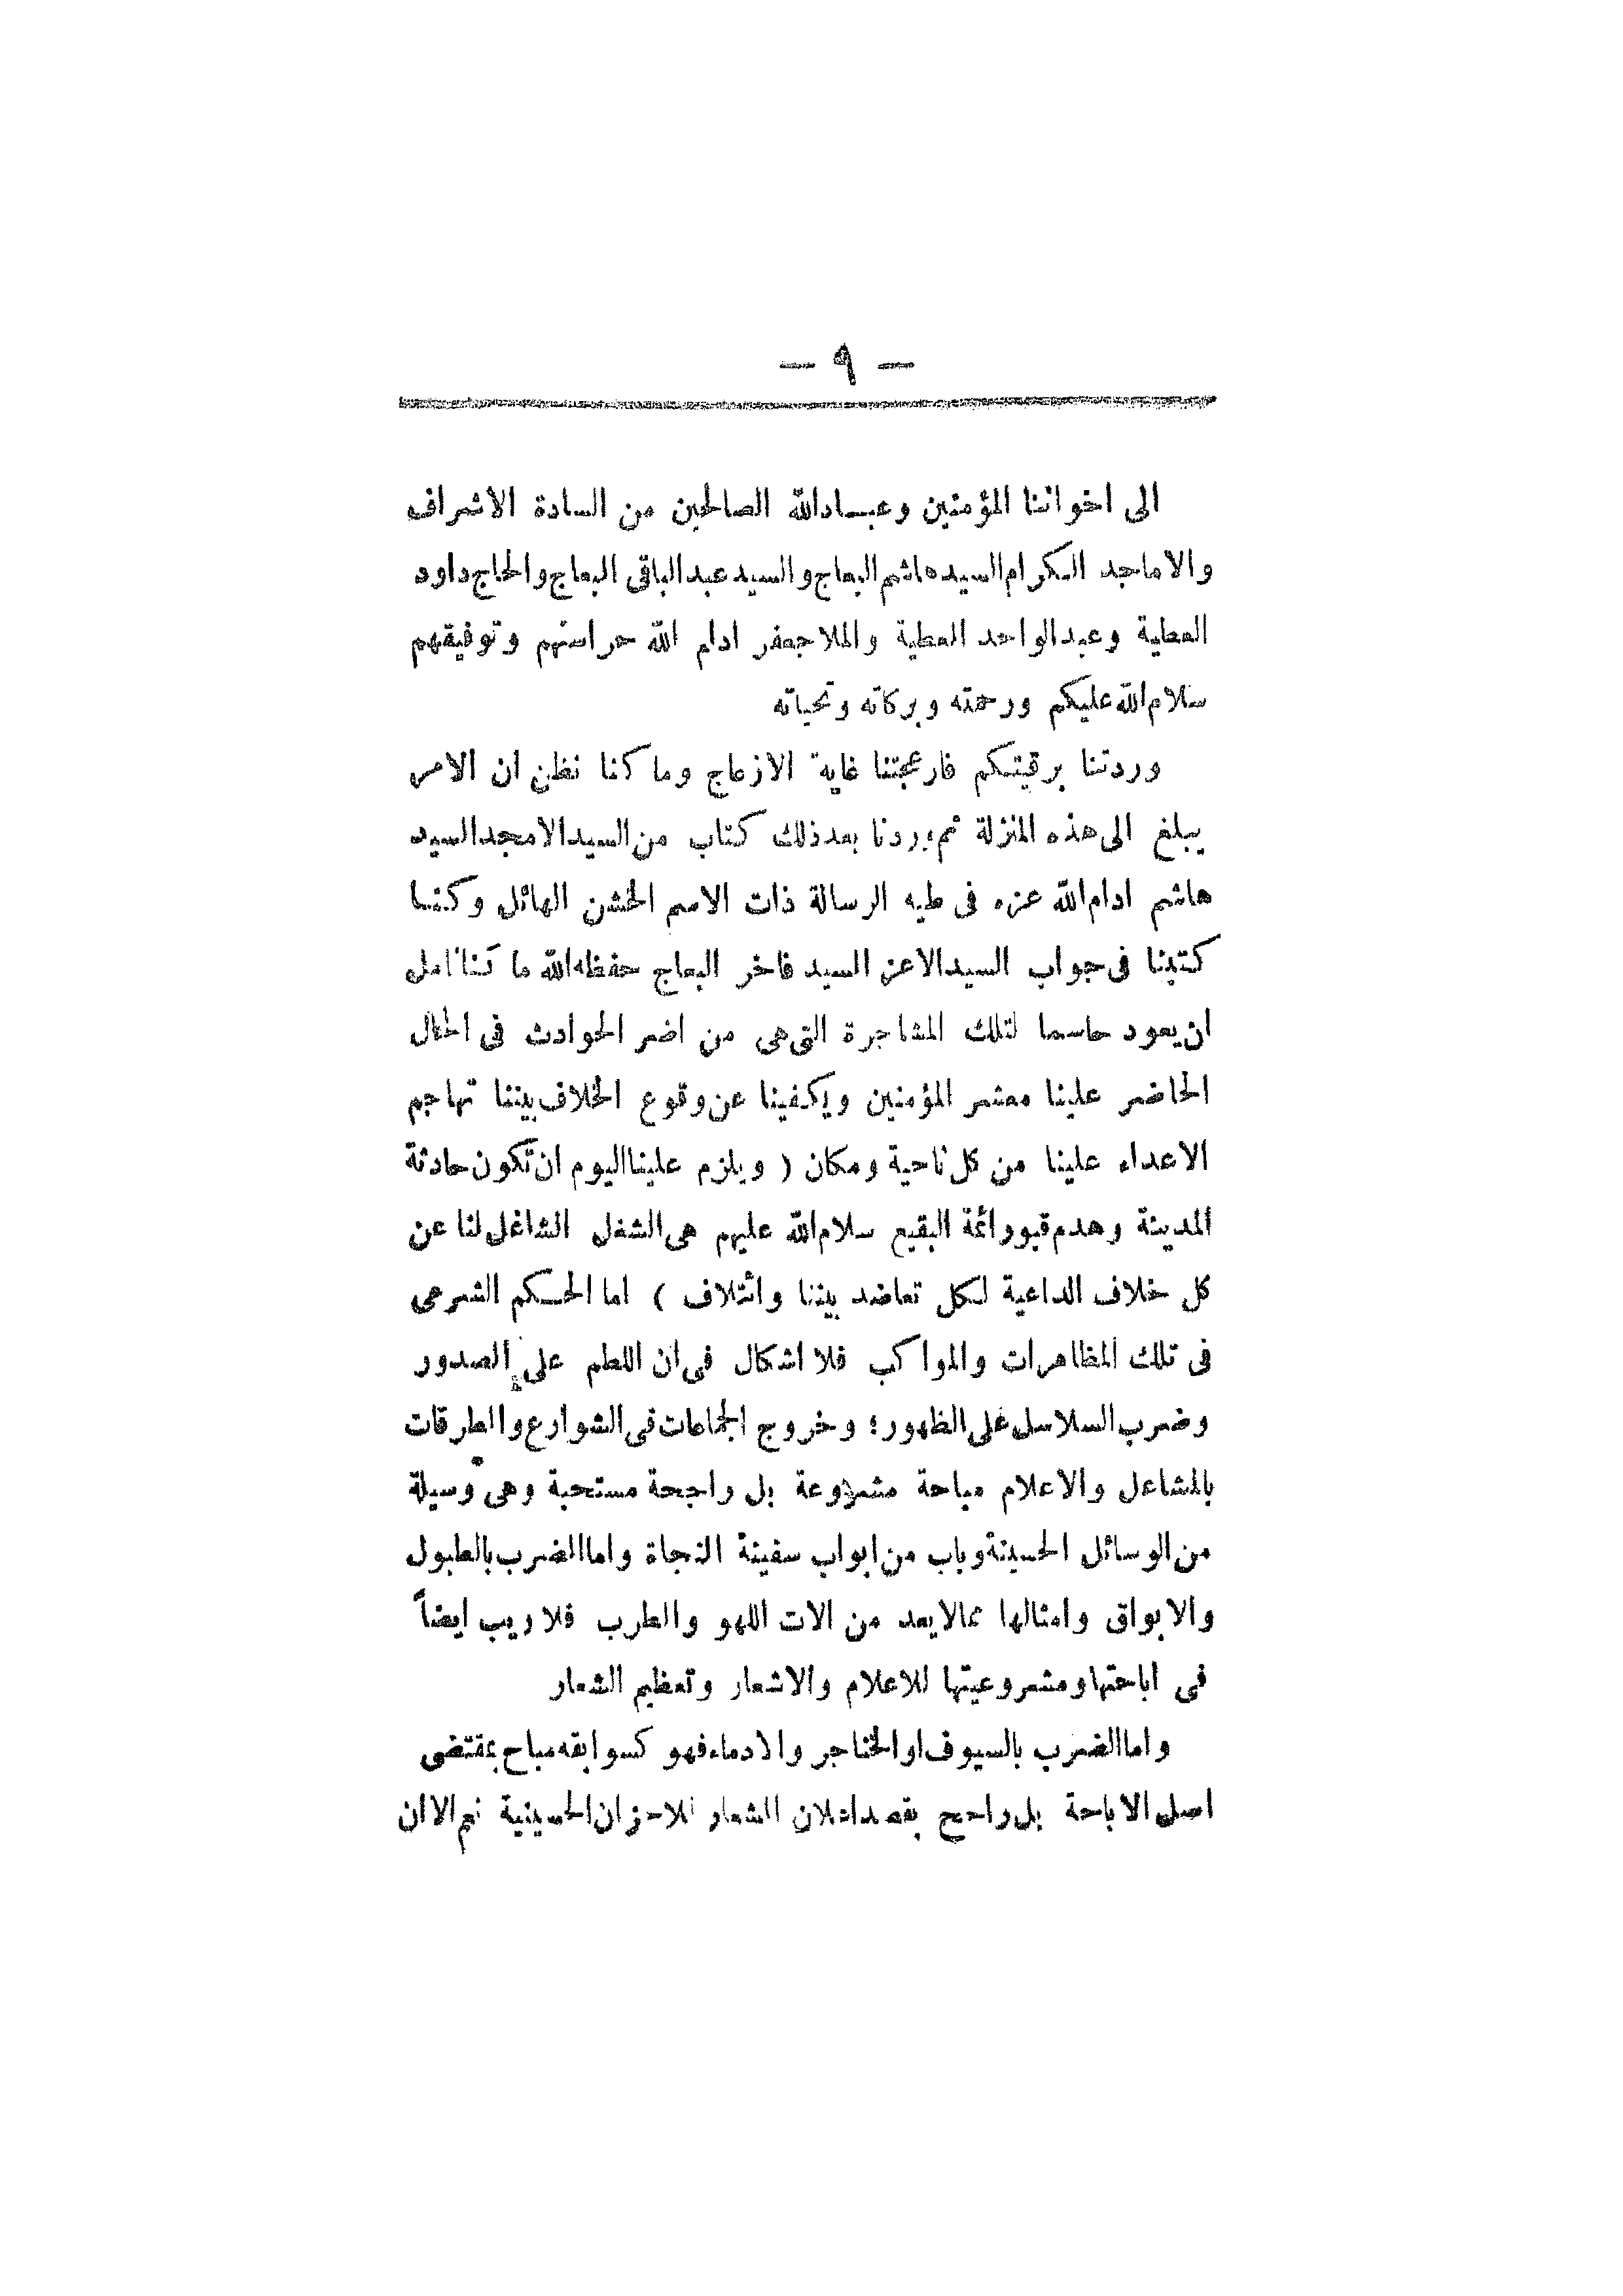 — ٩ —
الى اخواننا المؤمنين وعبـاد الله الصالحين من السادة الاشراف
والاماجد الكرام السيد هاشم البعاج والسيد عبد الباقى البعاج والحاج داود
العطية وعبد الواحد العطية والملا جعفر ادام الله حراستهم وتوفيقهم
سلام الله عليكم ورحمته وبركاته وتحياته
وردتنا برقيتكم فازعجتنا غاية الازعاج وما كنا نظن ان الامر
يبلغ الى هذه المنزلة ثم وردنا بعد ذلك كتاب من السيد الامجد السيد
هاشم ادام الله عزه فى طيه الرسالة ذات الاسم الخشن الهائل وكنا
كتبنا فى جواب السيد الاعز السيد فاخر البعاج حفظه الله ما كنا نامل
ان يعود حاسما لتلك المشاجرة التى هى من اضر الحوادث فى الحال
الحاضر علينا معشر المؤمنين ويكفينا عن وقوع الخلاف بيننا تهاجم
الاعداء علينا من كل ناحية ومكان ( ويلزم علينا اليوم ان تكون حادثة
المدينة وهدم قبور ائمة البقيع سلام الله عليهم هى الشغل الشاغل لنا عن
كل خلاف الداعية لكل تعاضد بيننا وائتلاف ) اما الحكم الشرعى
فى تلك المظاهرات والمواكب فلا اشكال فى ان اللطم على الصدور
وضرب السلاسل على الظهور؛ وخروج الجماعات فى الشوارع والطرقات
بالمشاعل والاعلام مباحة مشروعة بل راجحة مستحبة وهى وسيلة
من الوسائل الحسينة وباب من ابواب سفينة النجاة واما الضرب بالطبول
والابواق وامثالها مما لايعد من الات اللهو والطرب فلا ريب ايضاً
فى اباحتها ومشروعيتها للاعلام والاشعار وتعظيم الشعار
واما الضرب بالسيوف او الخناجر والادماء فهو كسوابقه مباح بمقتضى
اصل الاباحة بل راجح بقصد اعلان الشعار للاحزان الحسينية نعم الا ان